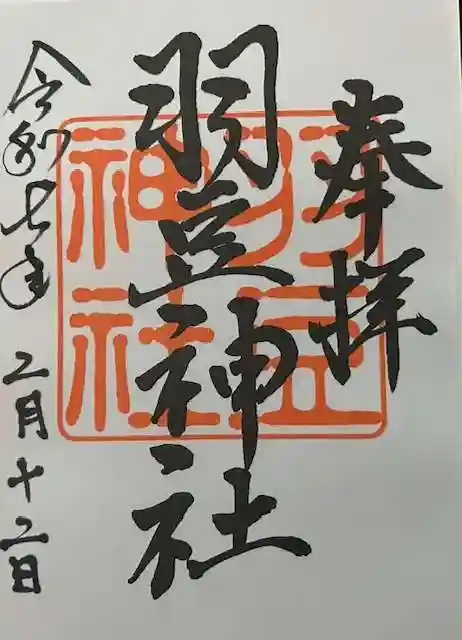 奉拝
羽豆神社
羽豆神社
令和七年 二月十二日